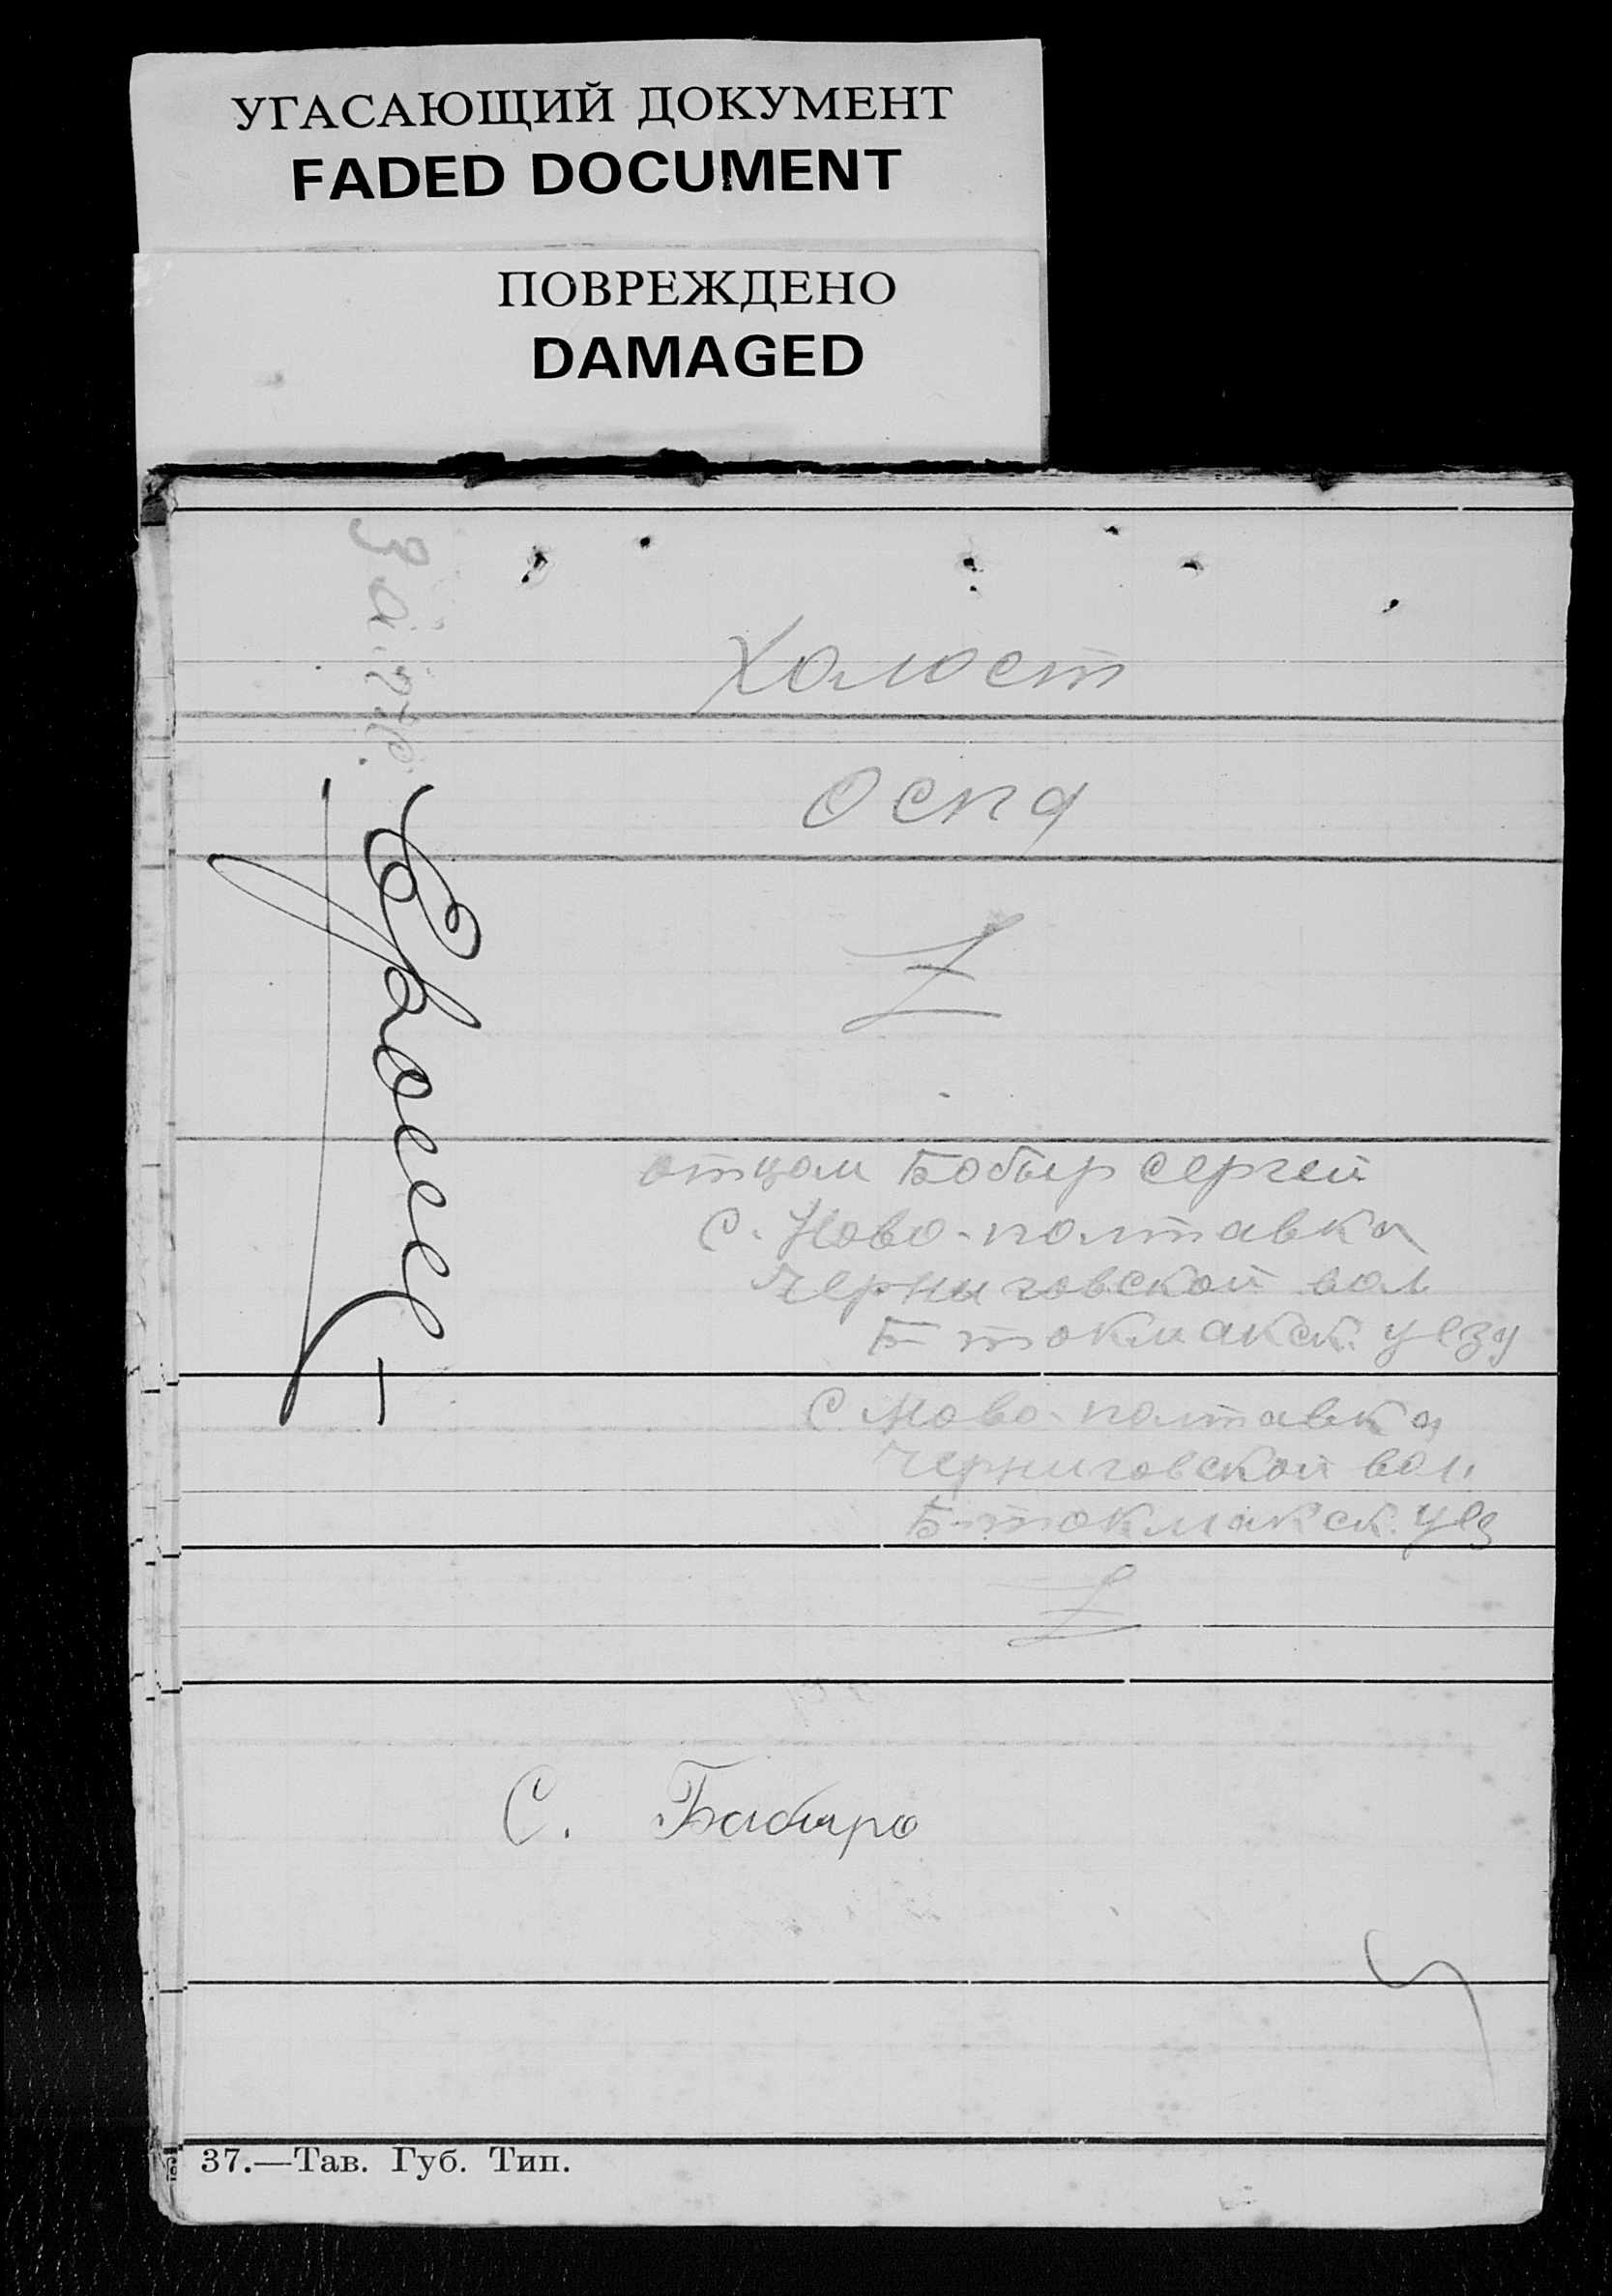 УГАСАЮЩИЙ ДОКУМЕНТ
FADED DOCUMENT
ПОВРЕЖДЕНО
DAMAGED
Холост
Оспа
отцом Бобыр Сергей
с. Ново-полтавка
Черниговской вол
Б токмакск. уезд
С Ново-полтавка
Черниговской вол.
Б-токмакск. уез
С. Бабыро
37.—Тав. Губ. Тип.